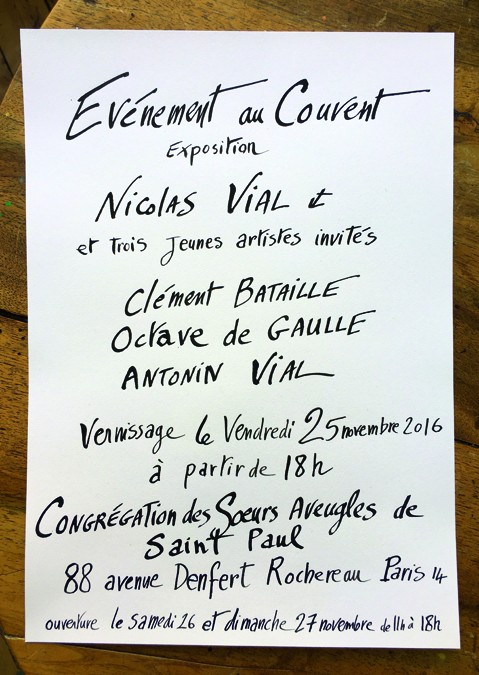 Evénement au Couvent
Exposition
Nicolas VIAL
et trois jeunes artistes invités
Clément BATAILLE
Octave de GAULLE
ANTONIN VIAL
Vernissage le Vendredi 25 novembre 2016
à partir de 18h
CONGRÉGATION des Sœurs Aveugles de
Saint Paul
88 avenue Denfert Rochereau Paris 14
ouverture le samedi 26 et dimanche 27 novembre de 11h à 18h